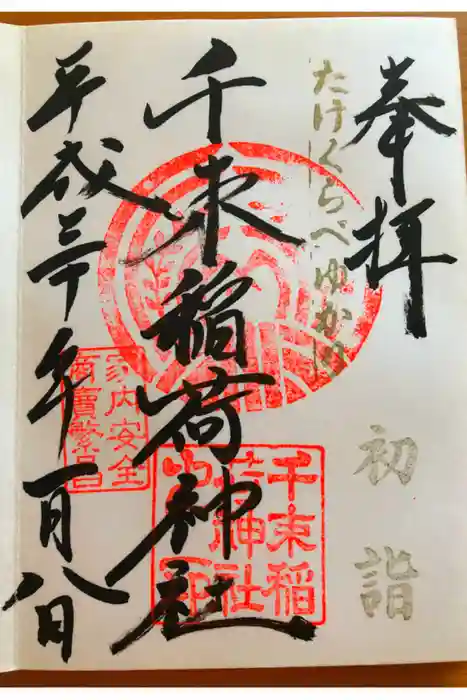 奉拝
初詣
たけくらべゆかり
千束稲荷神社
平成三十年一月八日
家内安全
商売繁昌
千束稲
荷神社